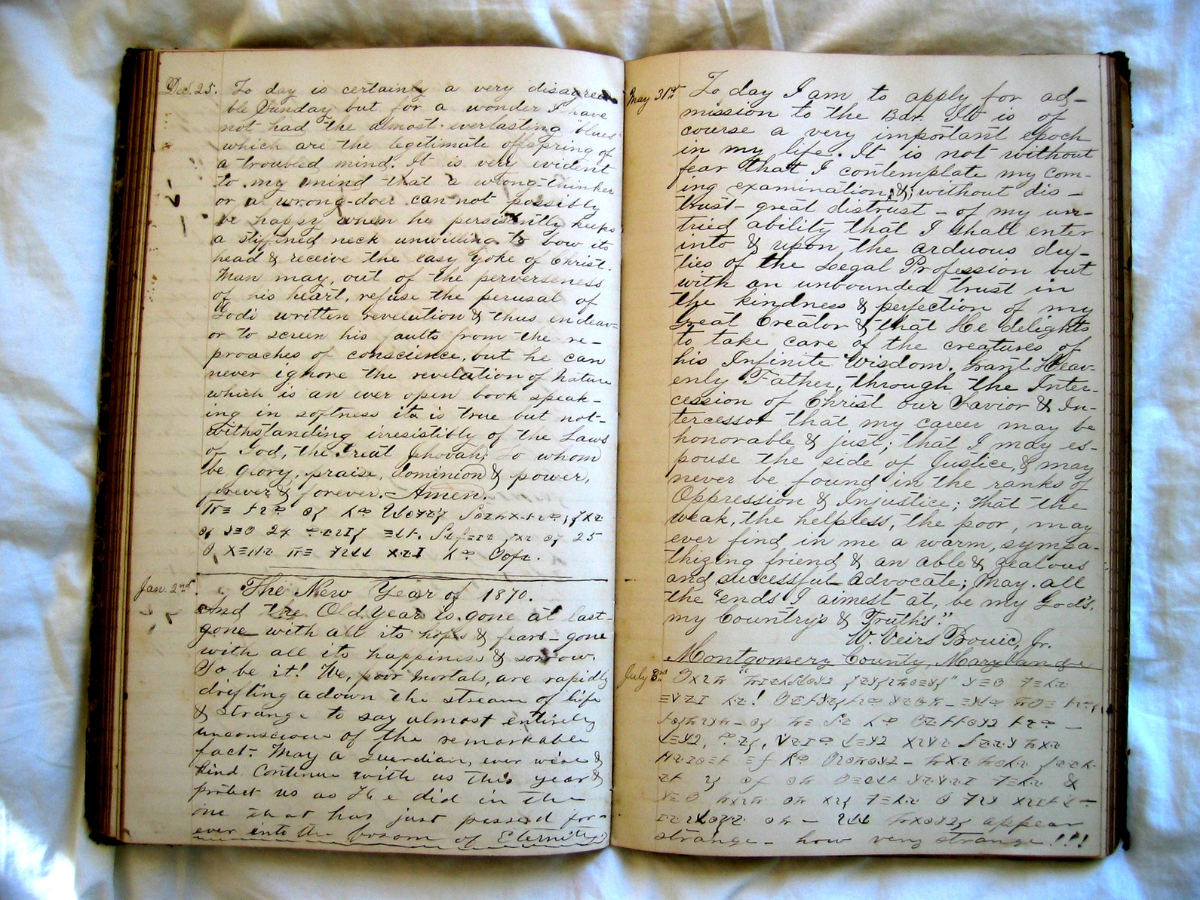 Dec. 25. To day is certainly a very disagreea-
ble Sunday but for a wonder I have
not had the almost everlasting "blues"
which are the legitimate offspring of
a troubled mind. It is very evident
to my mind that a wrong-thinker
or a wrong-doer can not possibly
be happy when he persistently keeps
a stiffned neck unwilling to bow its
head & receive the easy yoke of Christ.
Man may, out of the perverseness
of his heart, refuse the perusal of
God's written revelation & thus indeav-
or to screen his faults from the re-
proaches of conscience, but he can
never ignore the revelation of Nature
which is an ever open book speak-
ing in softness it is true but not-
withstanding irresistibly of the Laws
of God, the Great Jehovah; To whom
be Glory, praise, Dominion & power,
forever & forever. - Amen.
Jan. 2nd. The New Year of 1870.
And the Old Year is gone at last-
gone with all its hopes & fears - gone
with all its happiness & sorrow.
So be it! We, poor mortals, are rapidly
drifting adown the stream of life
& strange to say almost entirely
unconscious of the remarkable
fact. May a Guardian, ever wise &
kind continue with us this year &
protect us as He did in the
one that has just passed for-
ever into the bosom of Eternity
May 31st To day I am to apply for ad-
mission to the Bar. It is of
course a very important epoch
in my life. It is not without
fear that I contemplate my com-
ing examination, & without dis-
trust - great distrust - of my un-
tried ability that I shall enter
into & upon the arduous du-
ties of the Legal Profession but
with an unbounded trust in
the kindness & perfection of my
Great Creator & that He delights
to take care of the creatures of
his Infinite Wisdom. Grant Heav-
enly Father, through the Inter-
cession of Christ our Savior & In-
tercessor that my career may be
honorable & just; that I may es-
pouse the side of Justice, & may
never be found in the ranks of
Oppression & Injustice; That the
weak, the helpless, the poor, may
ever find in me a warm, sympa-
thizing friend & an able & zealous
and successful advocate; May all
the "ends I aimest at, be my God's,
my Country's & Truths"
W. Veirs Bouic, Jr.
Montgomery County, Maryland
July 8
appear
strange - how very strange!!!